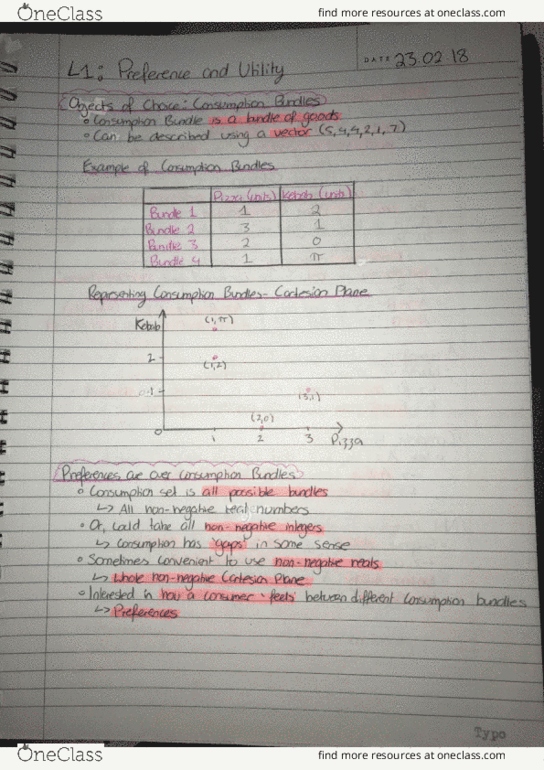 OneClass find more resources at oneclass.com
DATE 23.02.18
L1: Preference and Utility
Objects of Choice: Consumption Bundles
Consumption Bundle is a bundle of goods
Can be described using a vector (5,4,4,2,1,7)
Example of Consumption Bundles
Pizza (units) Kebab (units)
Bundle 1 1 2
Bundle 2 3 1
Bundle 3 2 0
Bundle 4 1 π
Representing Consumption Bundles - Cartesian Plane
Kebab
(1,π)
2
(1,2)
1
(3,1)
(2,0)
0 1 2 3 Pizza
Preferences are over consumption Bundles
Consumption set is all possible bundles
↳ All non-negative real numbers
Or, could take all non-negative integers
↳ Consumption has 'gaps' in some sense
Sometimes convenient to use non-negative reals
↳ Whole non-negative Cartesian Plane
Interested in how a consumer 'feels' between different consumption bundles
↳ Preferences
Typo
OneClass find more resources at oneclass.com